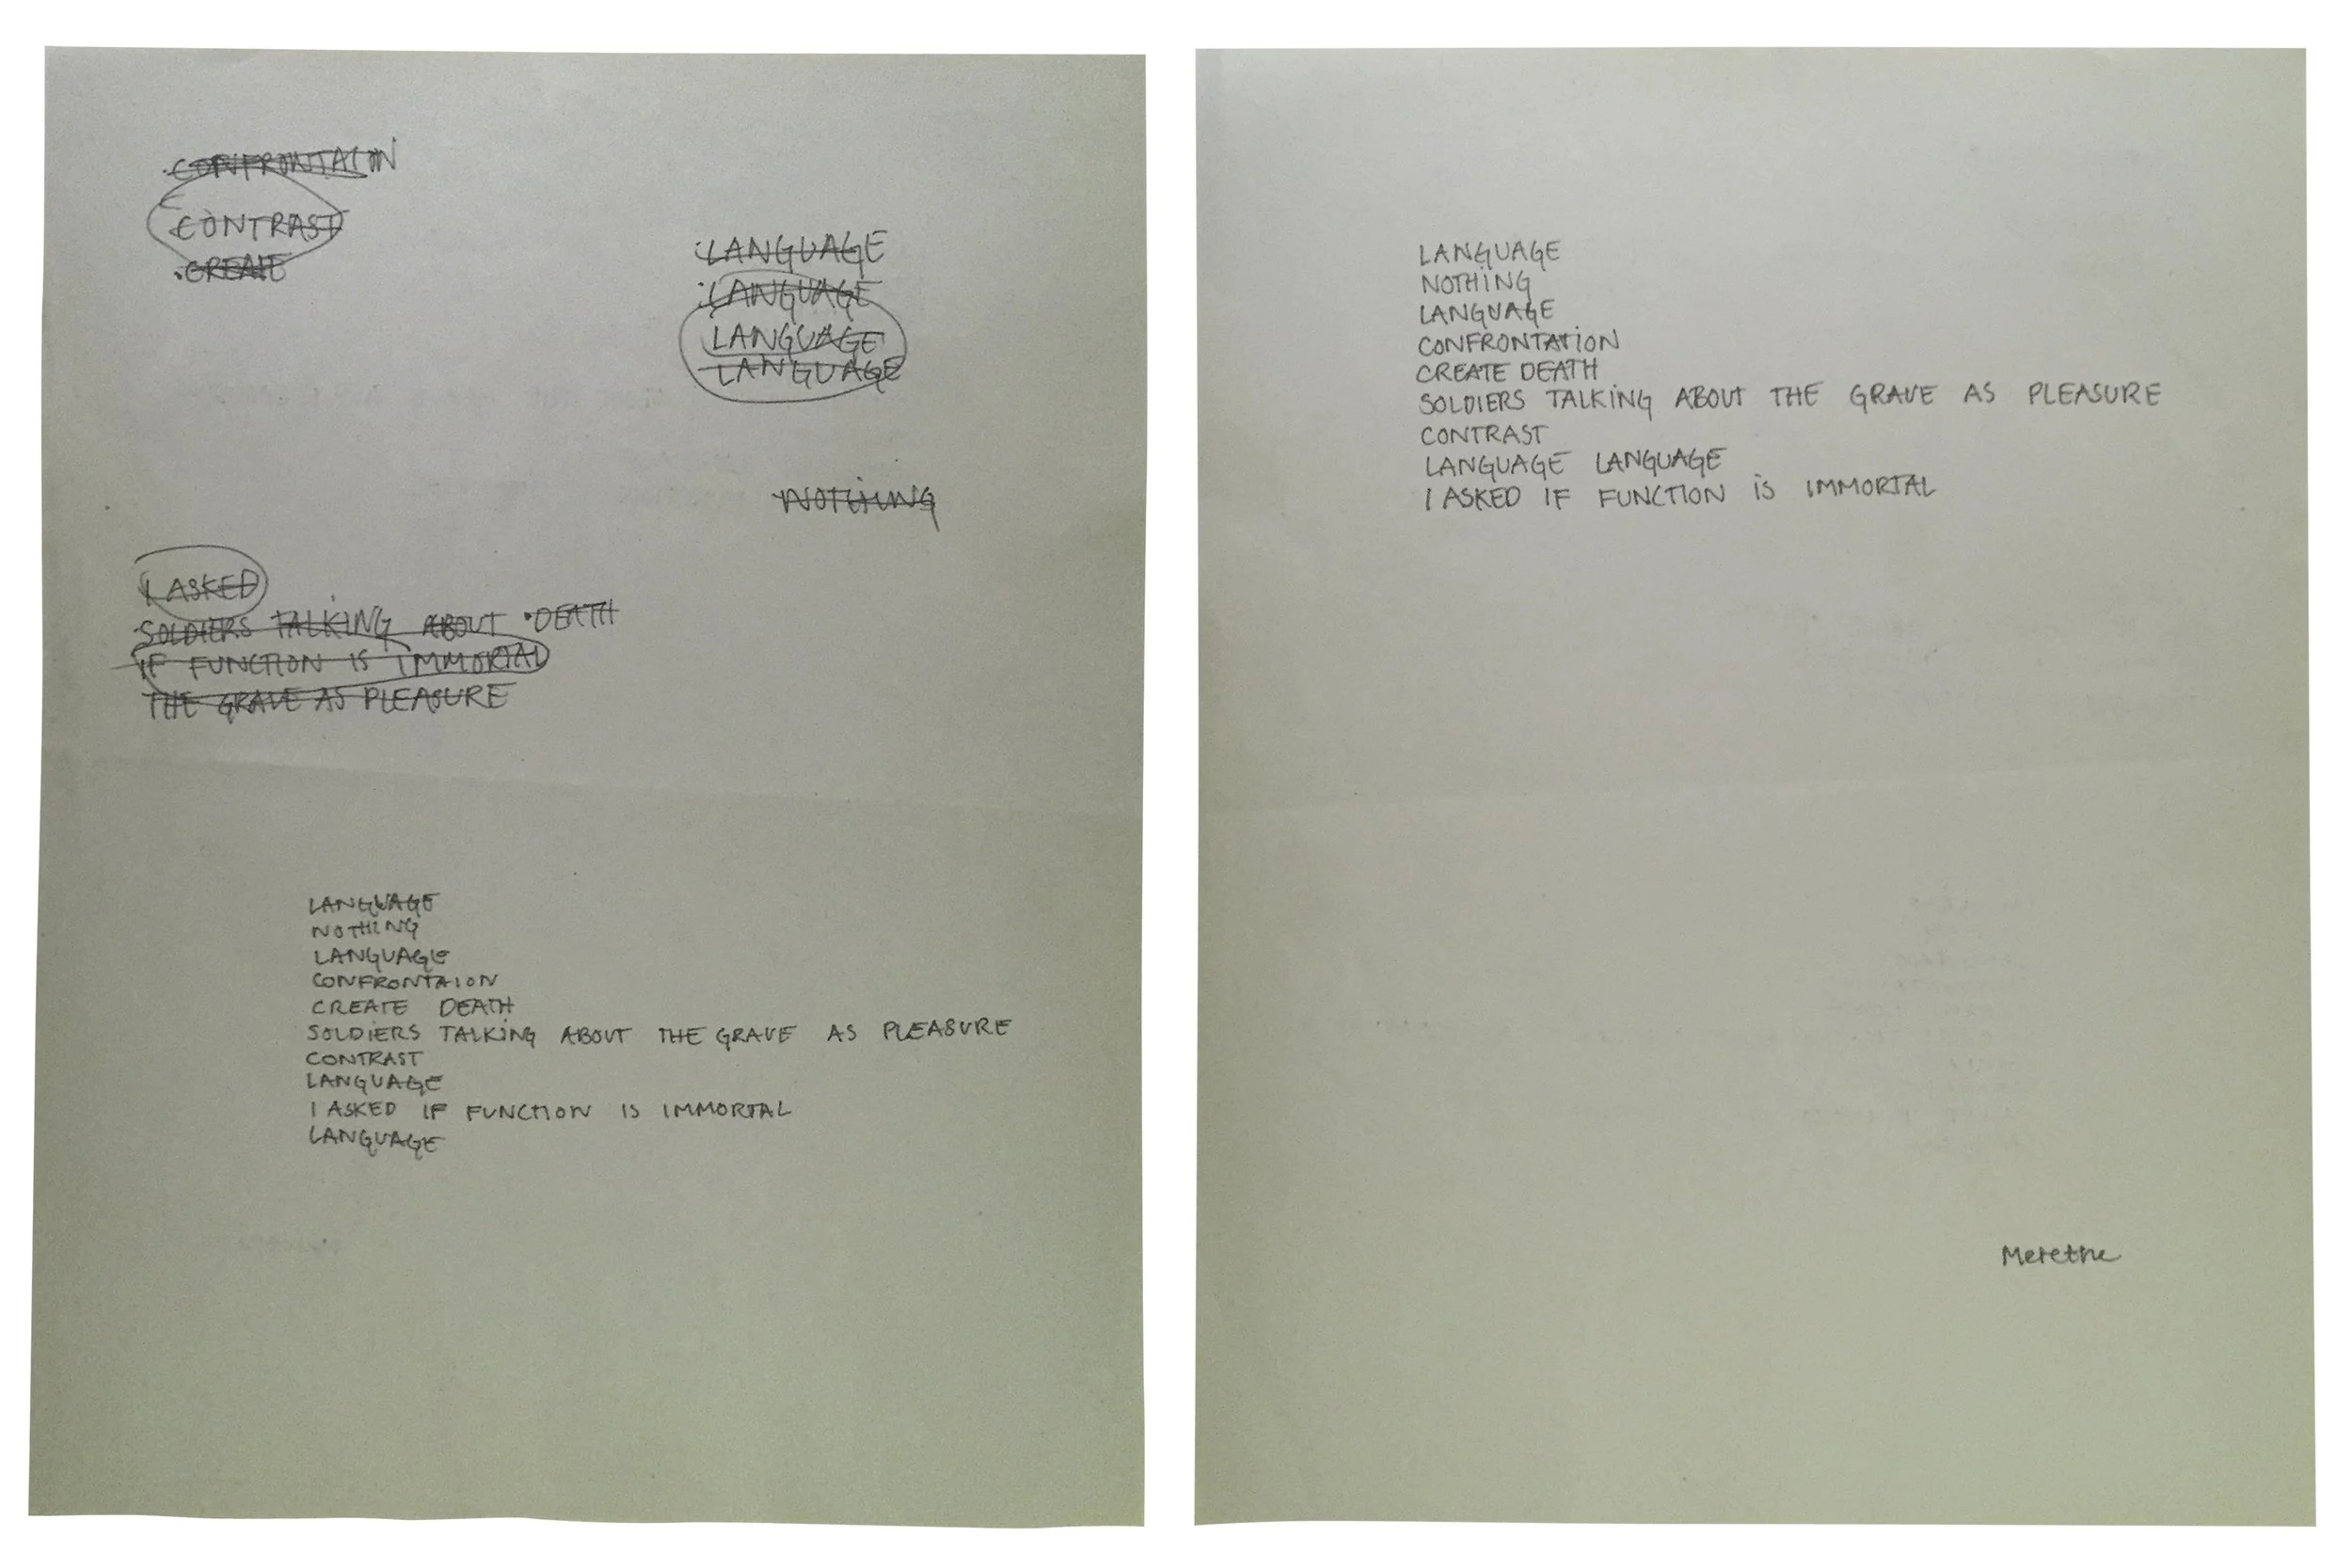 CONFRONTAION
CONTRAST
CREATE
LANGUAGE
LANGUAGE
LANGUAGE
LANGUAGE
NOTHING
I ASKED
SOLDIERS TALKING ABOUT DEATH
IF FUNCTION IS IMMORTAL
THE GRAVE AS PLEASURE
LANGUAGE
NOTHING
LANGUAGE
CONFRONTAION
CREATE DEATH
SOLDIERS TALKING ABOUT THE GRAVE AS PLEASURE
CONTRAST
LANGUAGE
I ASKED IF FUNCTION IS IMMORTAL
LANGUAGE
LANGUAGE
NOTHING
LANGUAGE
CONFRONTATION
CREATE DEATH
SOLDIERS TALKING ABOUT THE GRAVE AS PLEASURE
CONTRAST
LANGUAGE LANGUAGE
I ASKED IF FUNCTION IS IMMORTAL
Merethe